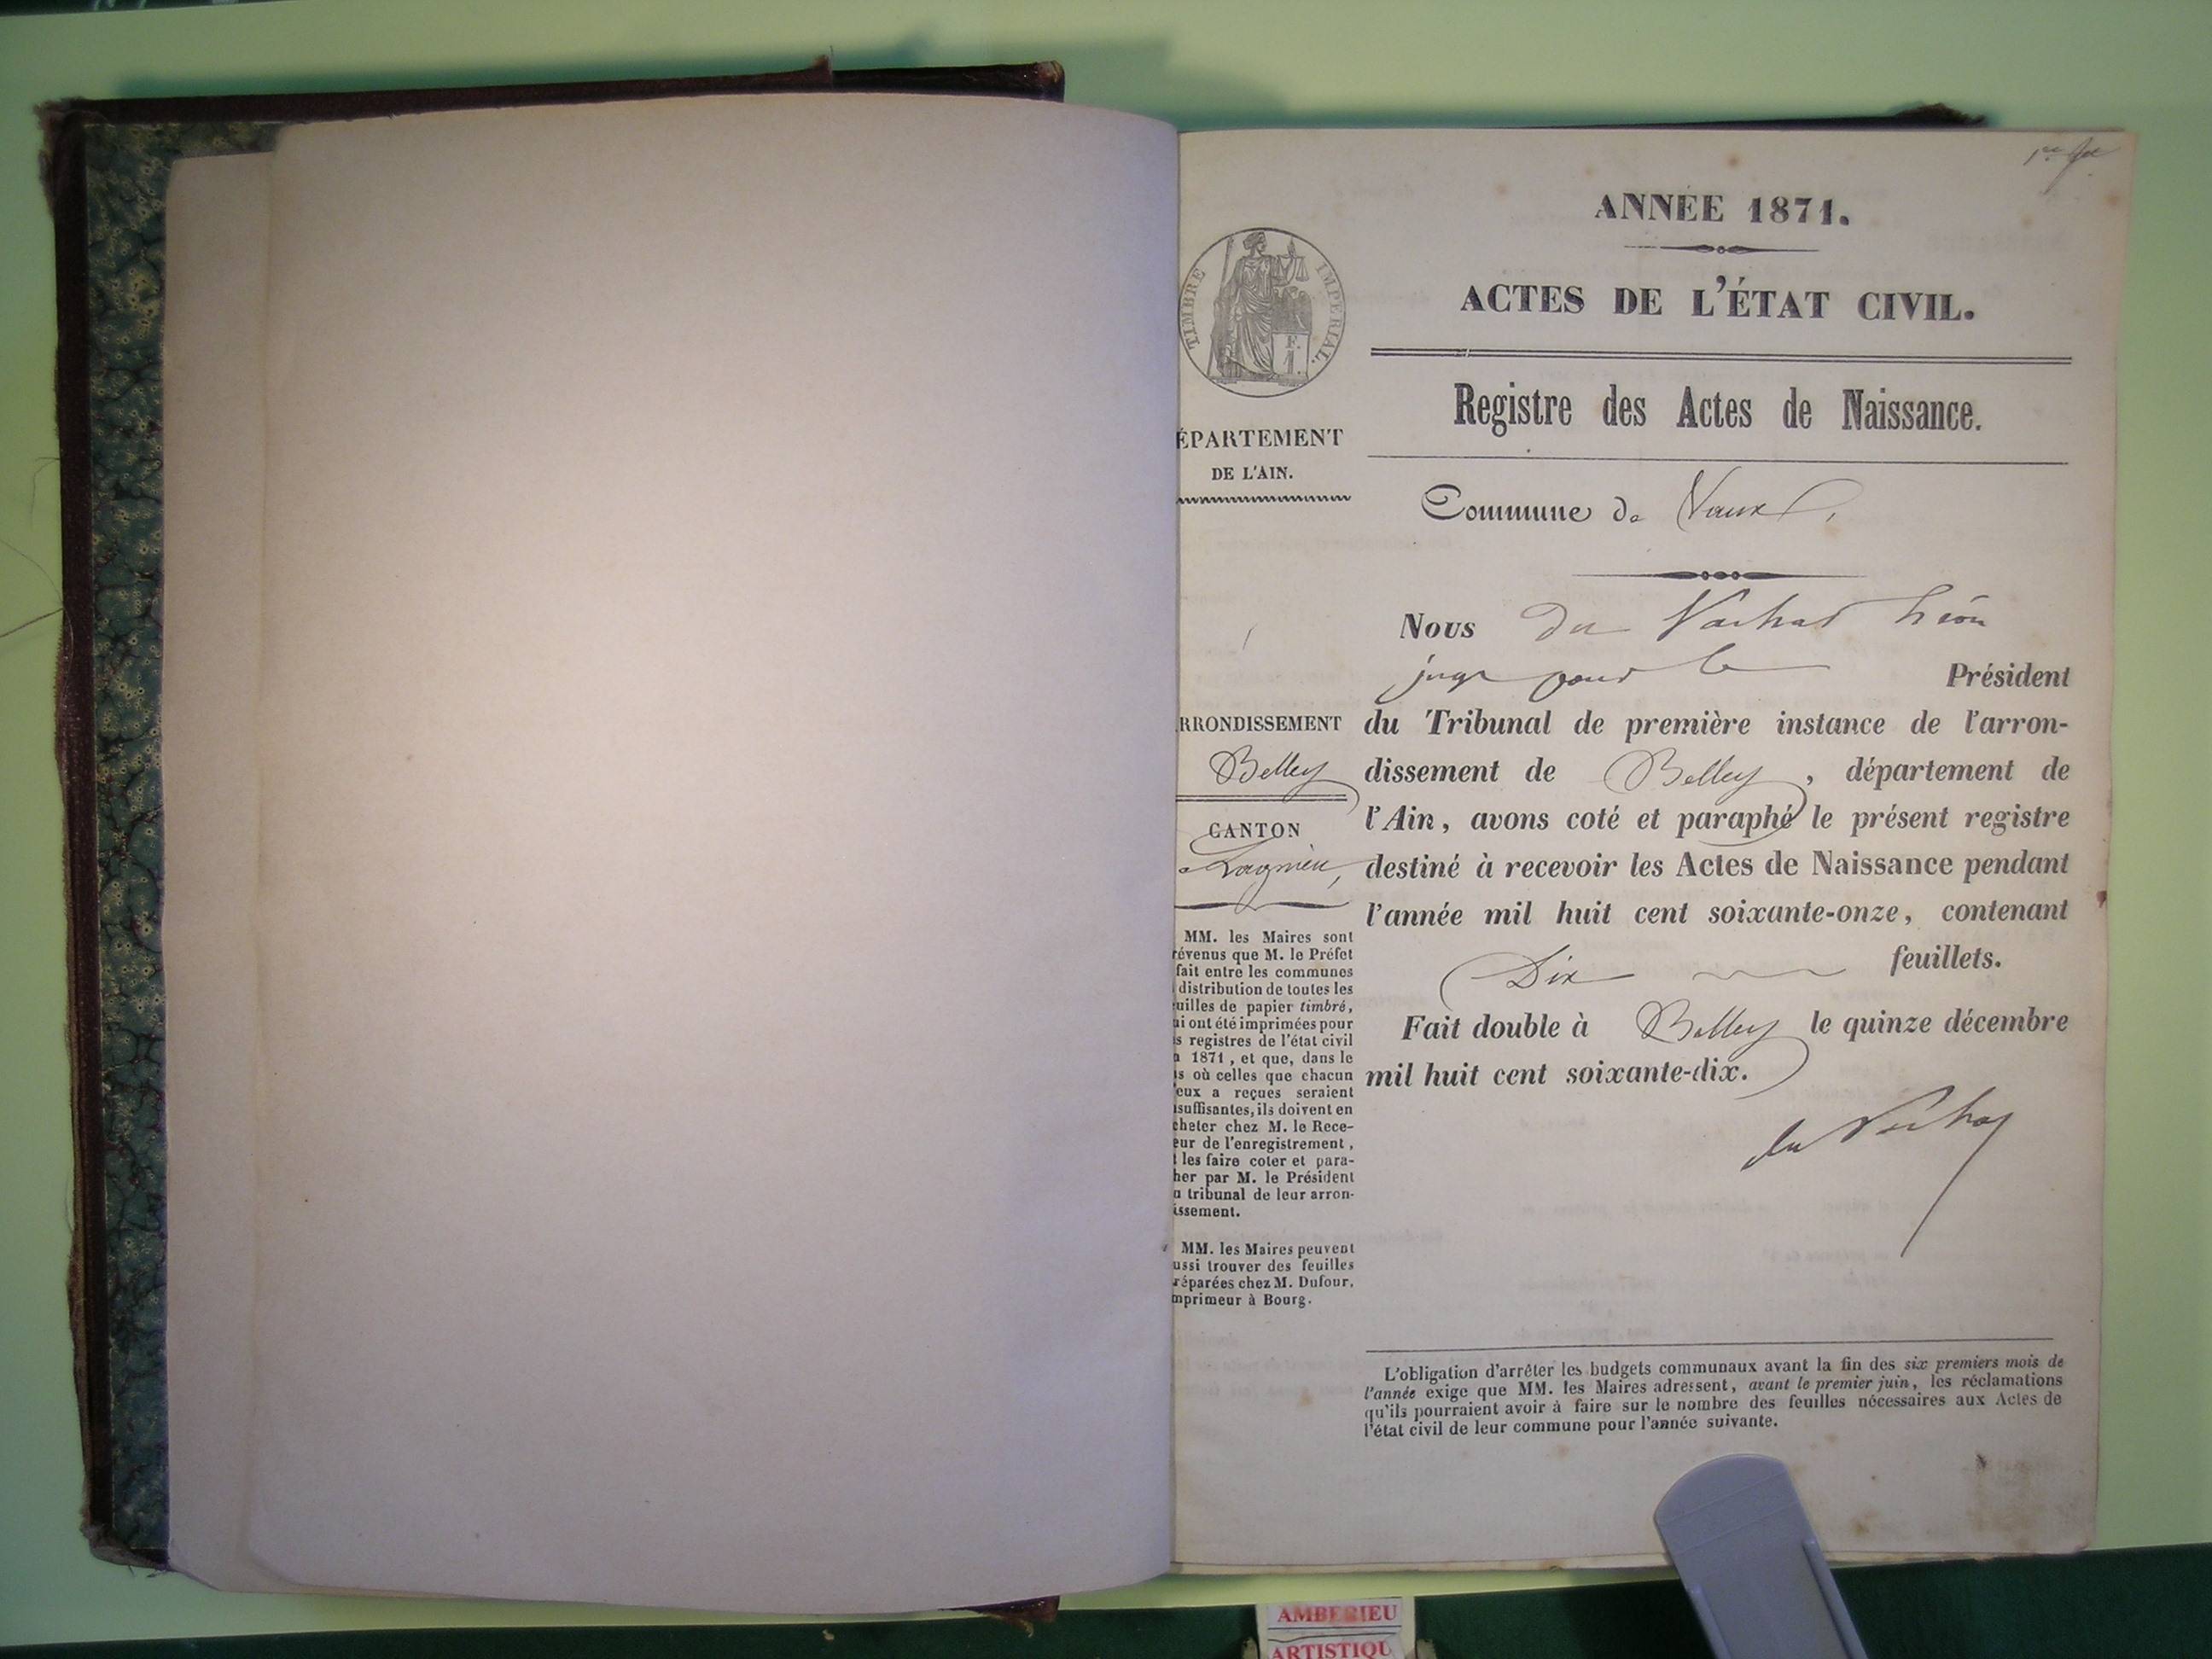 ANNÉE 1871.
ACTES DE L'ÉTAT CIVIL.
Registre des Actes de Naissance.
TIMBRE IMPERIAL.
F.
1.
ÉPARTEMENT
DE L'AIN.
Commune de Vaux,
Nous du Vachat Léon
juge pour le Président
du Tribunal de première instance de l'arron-
dissement de Belley, département de
l'Ain, avons coté et paraphé le présent registre
destiné à recevoir les Actes de Naissance pendant
l'année mil huit cent soixante-onze, contenant
Dix feuillets.
Fait double à Belley le quinze décembre
mil huit cent soixante-dix.
du Vachat
RRONDISSEMENT
Belley
CANTON
Lagnieu,
MM. les Maires sont
révenus que M. le Préfet
fait entre les communes
distribution de toutes les
uilles de papier timbré,
ui ont été imprimées pour
s registres de l'état civil
n 1871, et que, dans le
as où celles que chacun
'eux a reçues seraient
nsuffisantes, ils doivent en
cheter chez M. le Rece-
eur de l'enregistrement,
t les faire coter et para-
her par M. le Président
u tribunal de leur arron-
issement.
MM. les Maires peuvent
ussi trouver des feuilles
réparées chez M. Dufour,
mprimeur à Bourg.
L'obligation d'arrêter les budgets communaux avant la fin des six premiers mois de
l'année exige que MM. les Maires adressent, avant le premier juin, les réclamations
qu'ils pourraient avoir à faire sur le nombre des feuilles nécessaires aux Actes de
l'état civil de leur commune pour l'année suivante.
AMBERIEU
ARTISTIQU